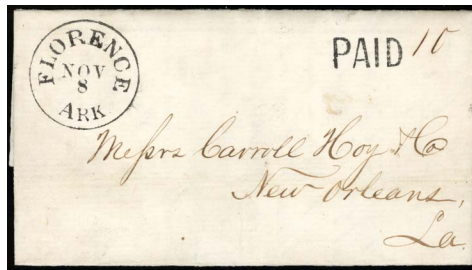 FLORENCE
NOV
8
ARK
PAID 10
Messrs Carroll Hoy & Co
New Orleans,
La.